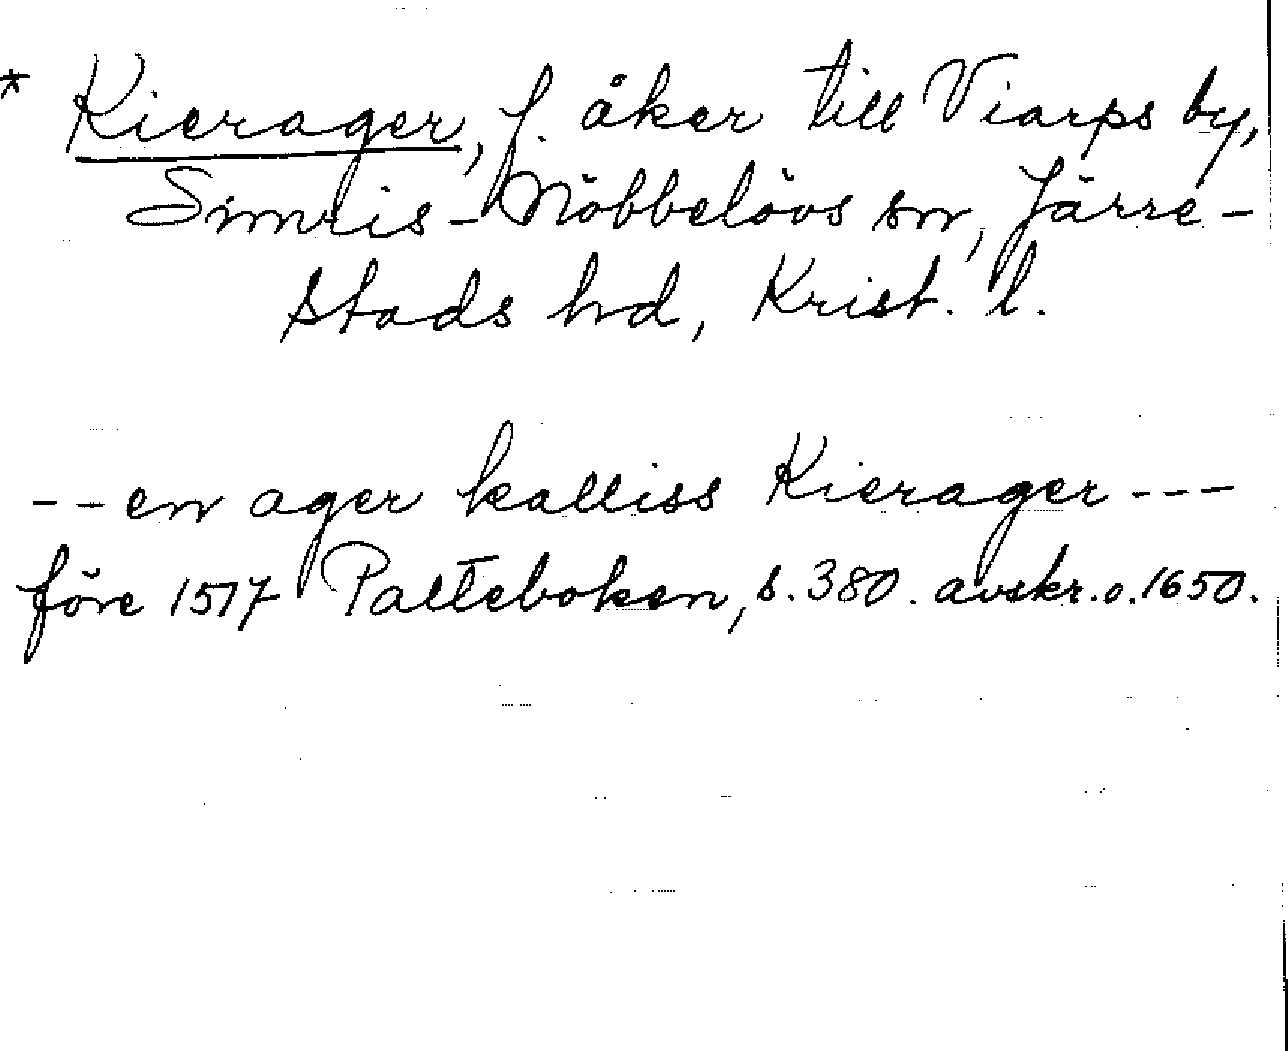 * Kierager, f. åker till Viarps by,
Simris-Nöbbelövs sn, Järre-
stads hd, Krist. l.
--en ager kalliss Kierager---
före 1517 Palteboken, s. 380. avskr. o. 1650.